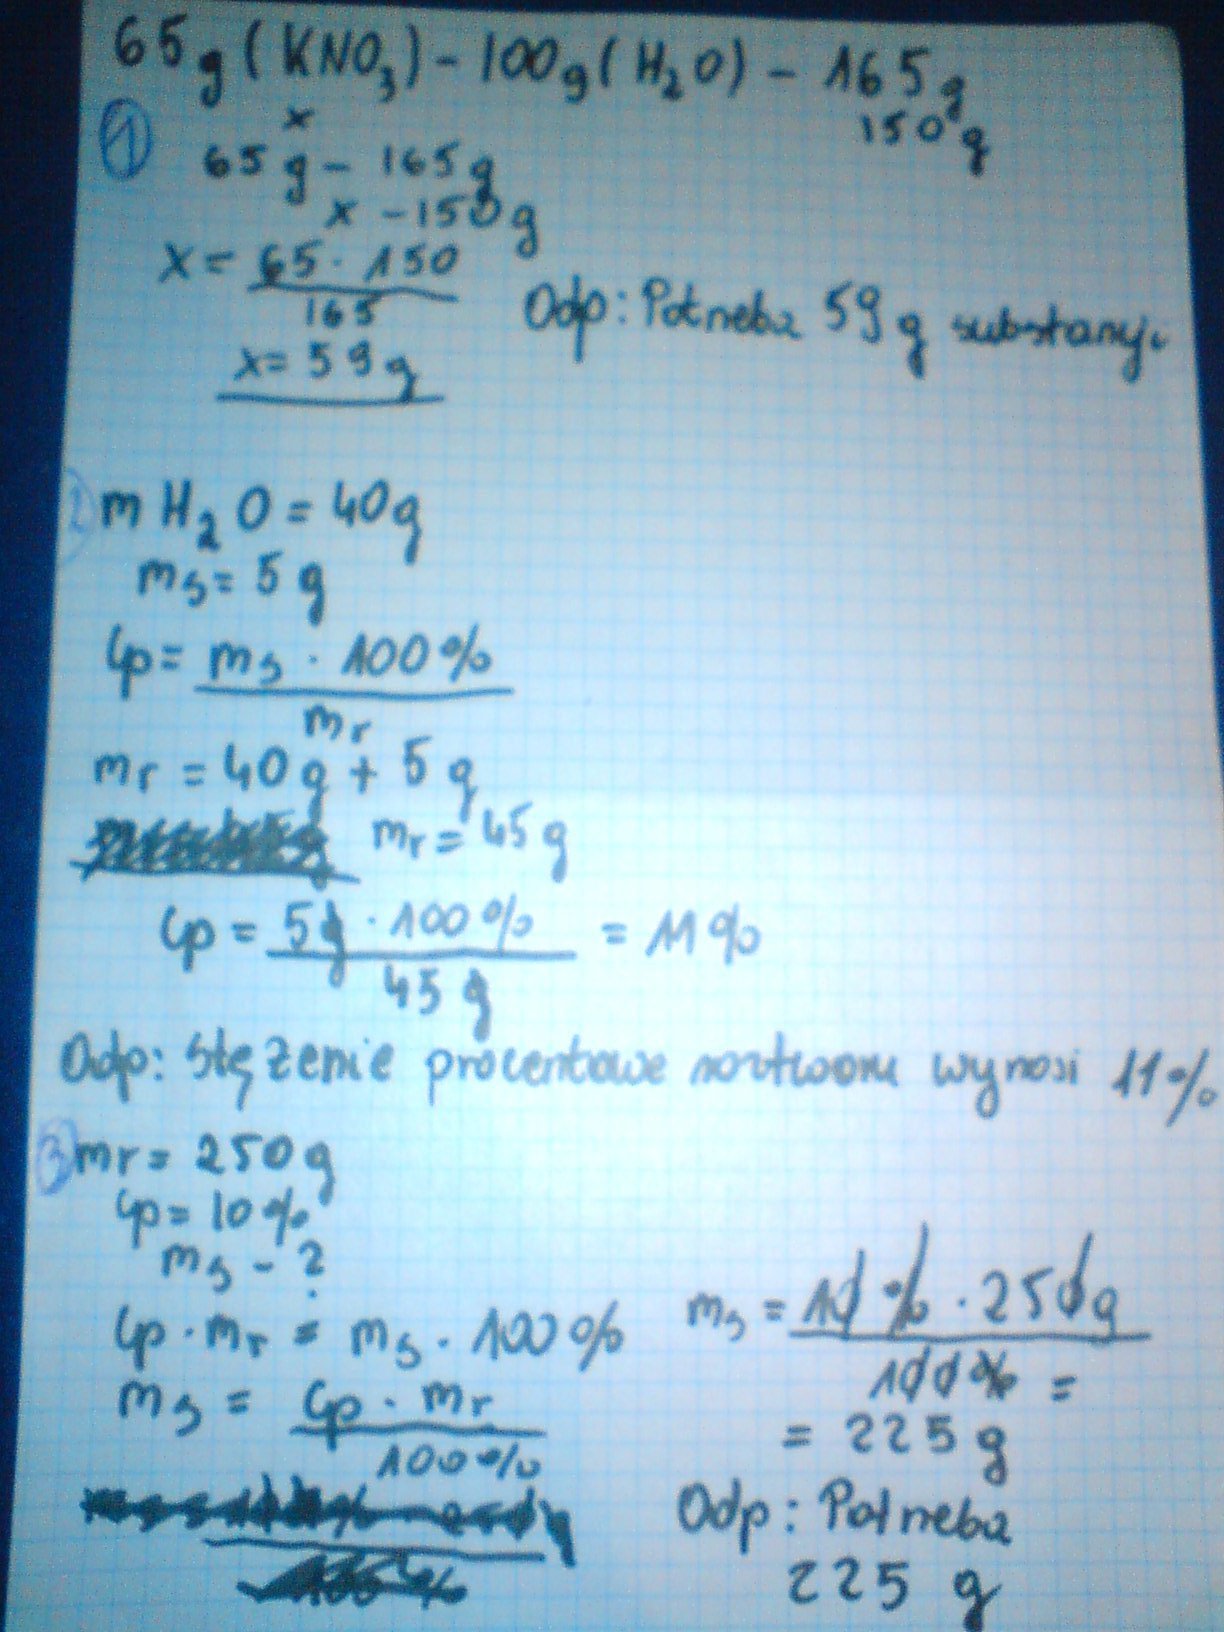 65g (KNO₃) - 100g (H₂O) - 165g
x
150g
① 65g - 165g
x - 150g
x = 65 · 150
165
x = 59g
Odp: Potrzeba 59g substancji
② mH₂O = 40g
ms = 5g
Cp = ms · 100%
mr
mr = 40g + 5g
mr = 45g
Cp = 5g · 100% = 11%
45g
Odp: Stężenie procentowe roztworu wynosi 11%
③ mr = 250g
Cp = 10%
ms - ?
Cp · mr = ms · 100%
ms = Cp · mr
100%
ms = 10% · 250g
100% =
= 225g
Odp: Potrzeba
225 g